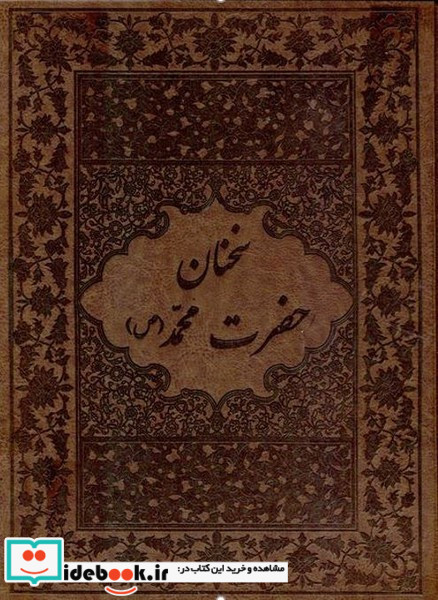 سخنان
حضرت محمّد (ص)
مشاهده و خرید این کتاب در:
idebook.ir